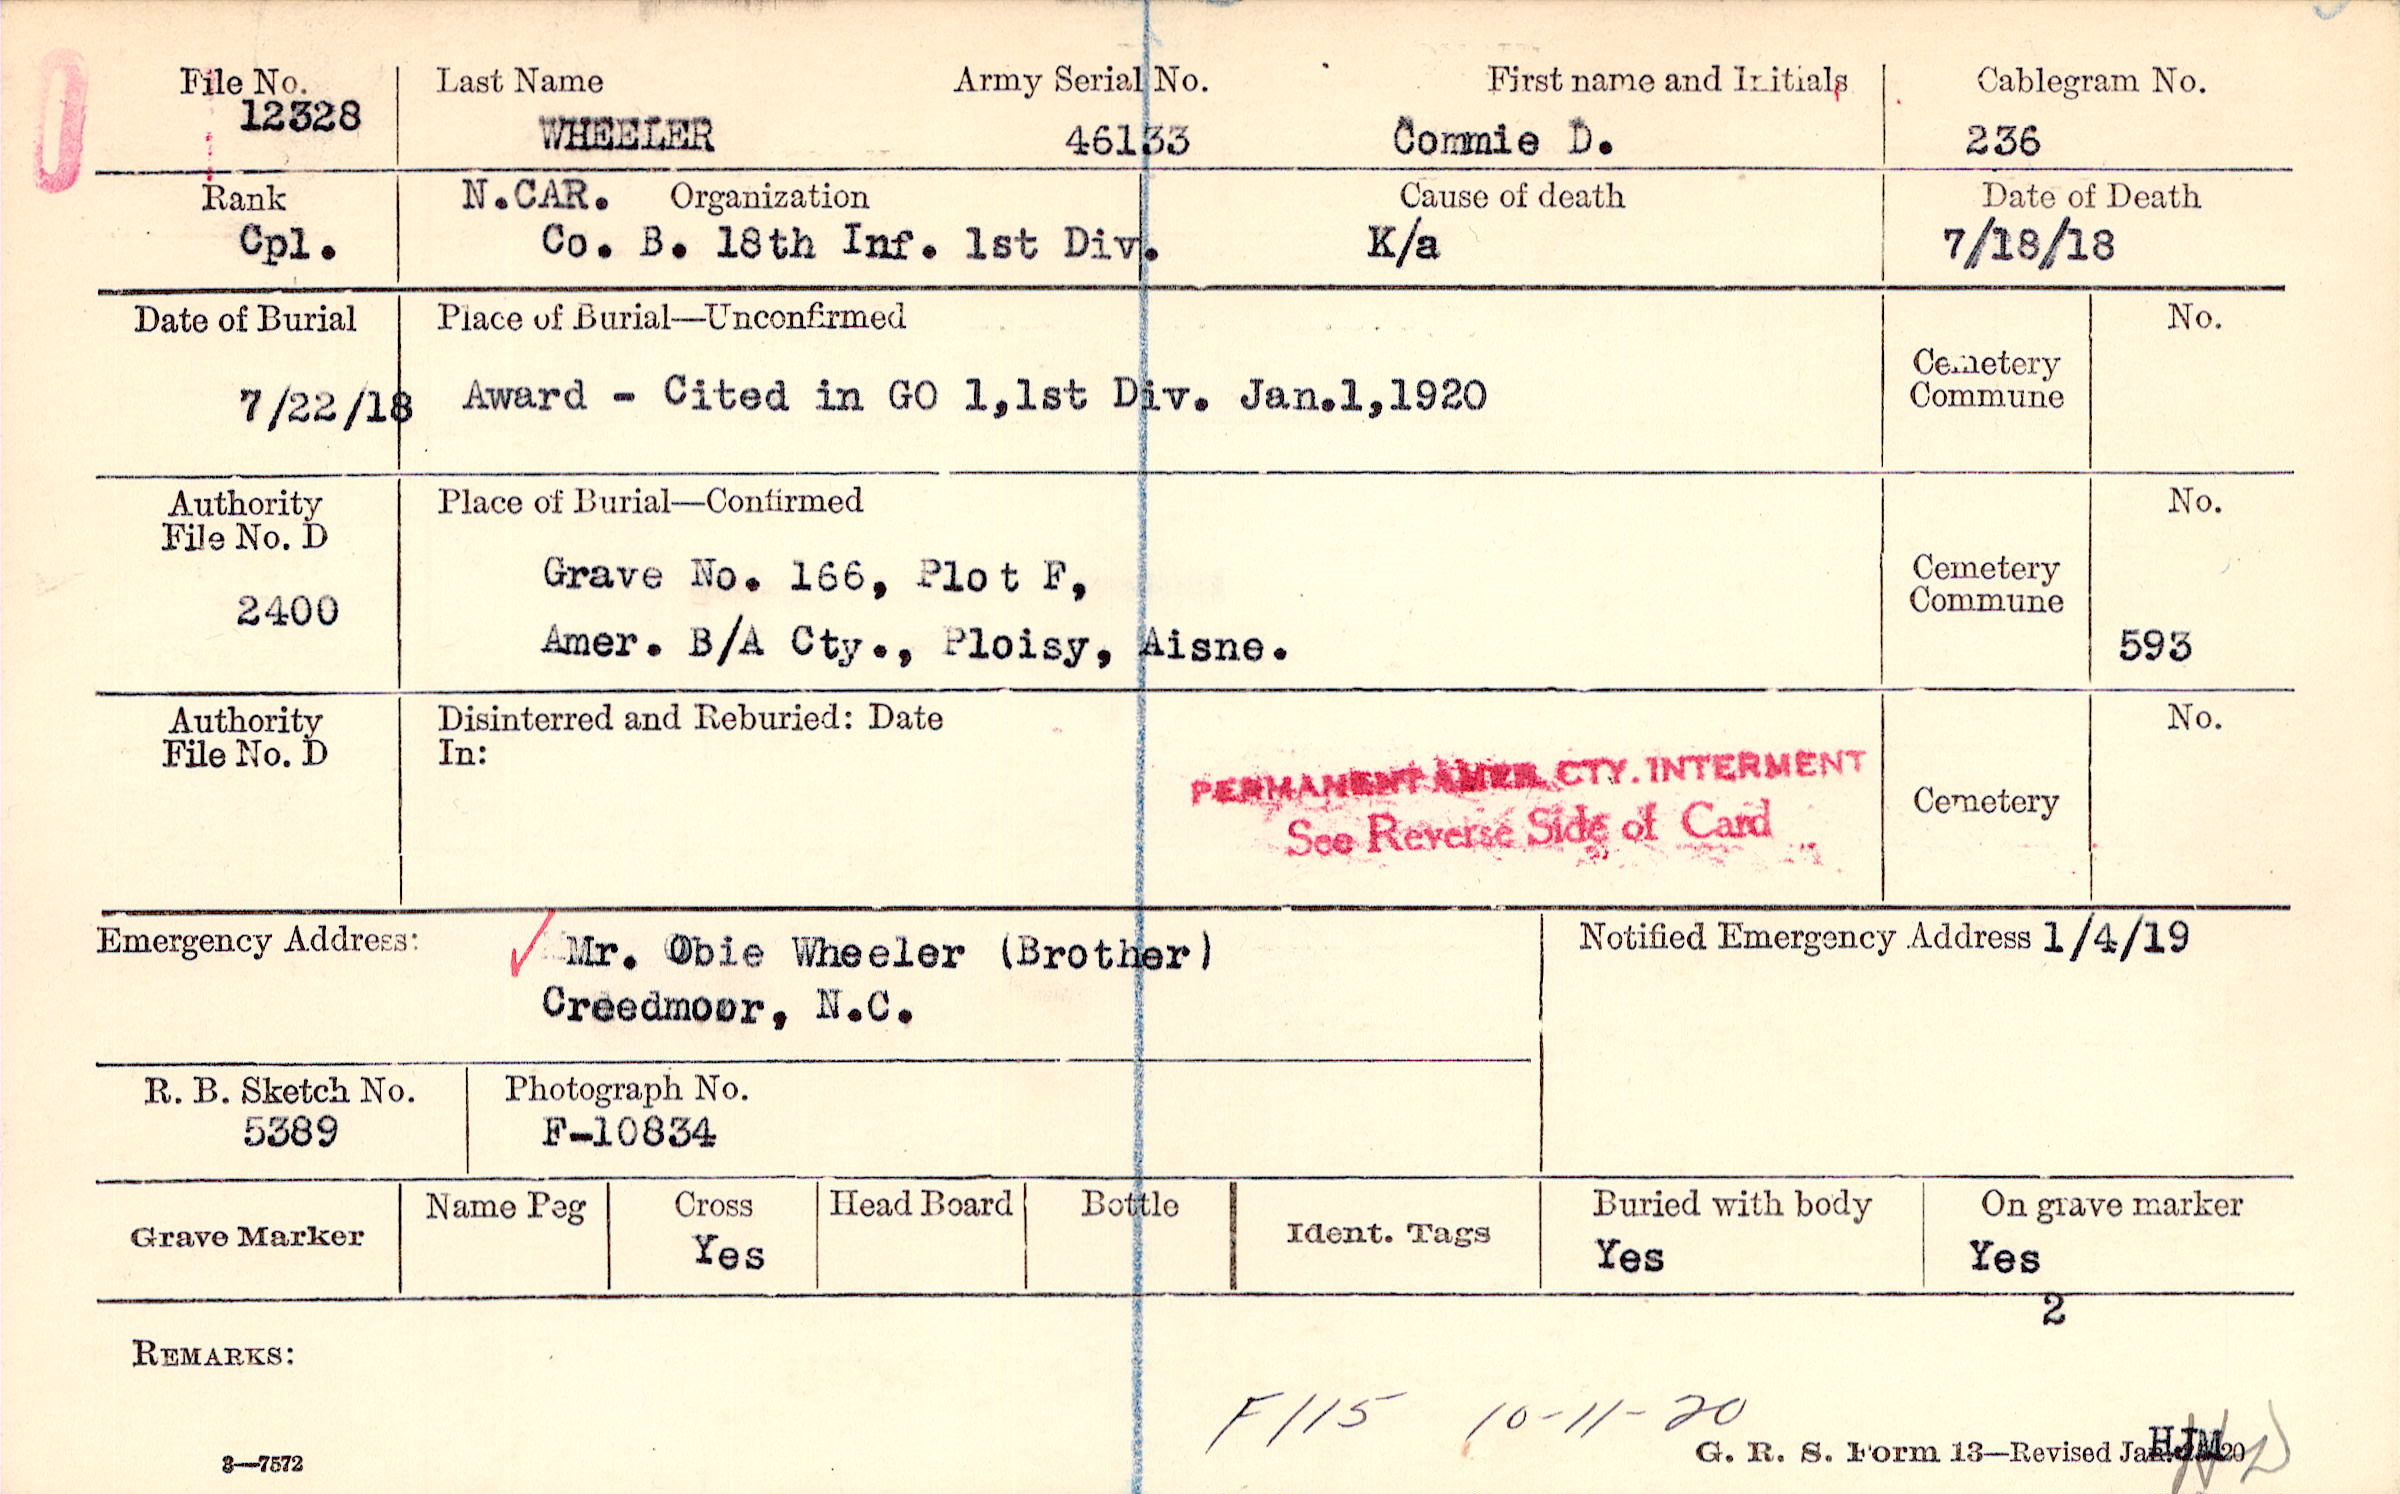 File No. Last Name Army Serial No. First name and Initials Cablegram No.
12328 WHEELER 46133 Commie D. 236
Rank N.CAR. Organization Cause of death Date of Death
Cpl. Co. B. 18th Inf. 1st Div. K/a 7/18/18
Date of Burial Place of Burial—Unconfirmed No.
Cemetery
Commune
7/22/18 Award - Cited in GO 1,1st Div. Jan.1,1920
Authority Place of Burial—Confirmed No.
File No. D
Grave No. 166, Plot F, Cemetery
2400 Commune
Amer. B/A Cty., Ploisy, Aisne. 593
Authority Disinterred and Reburied: Date No.
File No. D In:
PERMANENT AMER. CTY. INTERMENT
See Reverse Side of Card Cemetery
Emergency Address: Mr. Obie Wheeler (Brother) Notified Emergency Address 1/4/19
Creedmoor, N.C.
R. B. Sketch No. Photograph No.
5389 F-10834
Grave Marker Name Peg Cross Head Board Bottle Ident. Tags Buried with body On grave marker
Yes Yes Yes
2
REMARKS:
F115 10-11-20
3—7572 G. R. S. Form 13—Revised HJM